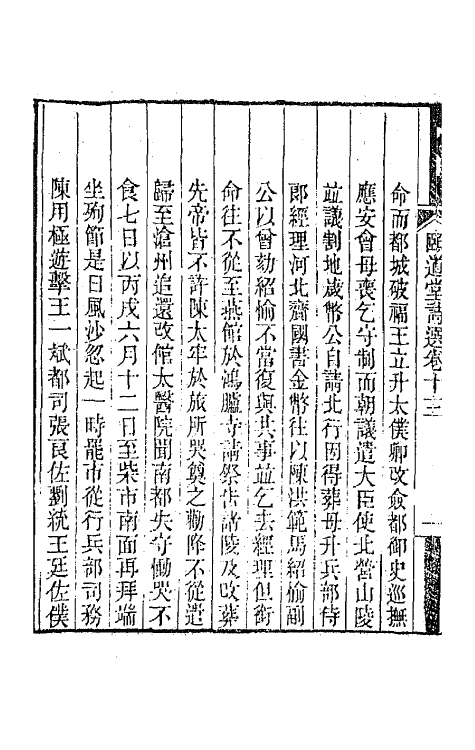 頤道堂詩選卷十三
命而都城破福王立升太僕卿改僉都御史巡撫
應安會母喪乞守制而朝議遣大臣使北營山陵
並議割地歲幣公自請北行因得葬母升兵部侍
郎經理河北齎國書金幣往以陳洪範馬紹愉副
公以曾劾紹愉不當復與共事並乞去經理但銜
命往不從至燕館於鴻臚寺請祭告諸陵及改葬
先帝皆不許陳太牢於旅所哭奠之勸降不從遣
歸至滄州追還改館太醫院聞南都失守慟哭不
食七日以丙戌六月十二日至柴市南面再拜端
坐殉節是日風沙忽起一時罷市從行兵部司務
陳用極遊擊王一斌都司張良佐劉統王廷佐僕